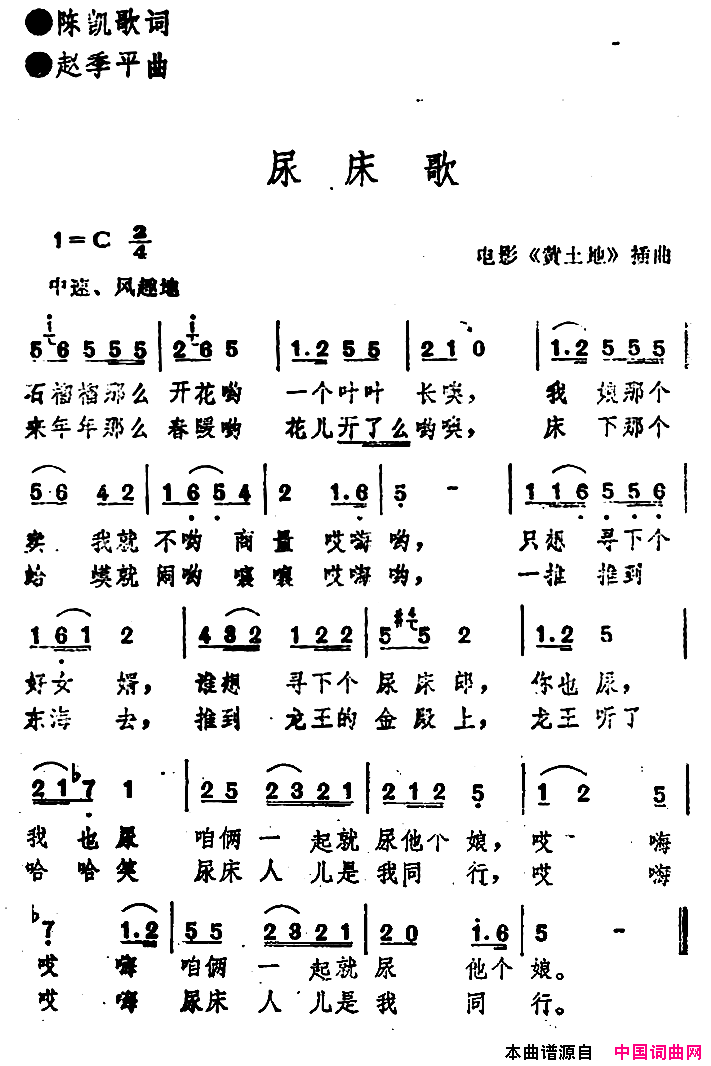 ●陈凯歌词
●赵季平曲
尿床歌
1=C 2/4
电影《黄土地》插曲
中速、风趣地
5 6 5 5 5 | 2 6 5 | 1. 2 5 5 | 2 1 0 | 1. 2 5 5 5 |
石榴榴那么 开花哟 一个叶叶 长唉， 我 娘那个
来年年那么 春暖哟 花儿开了么哟唉， 床 下那个
5 6 4 2 | 1 6 5 4 | 2 1. 6 | 5 - | 1 1 6 5 5 6 |
卖 我就 不哟 商量 哎嗨哟， 只想 寻下个
蛤 蟆就 闹哟 嚷嚷 哎嗨哟， 一推 推到
1 6 1 2 | 4 3 2 1 2 2 | 5 #4 5 2 | 1. 2 5 |
好女 婿， 谁想 寻下个 尿床郎， 你也尿，
东海 去， 推到 龙王的 金殿上， 龙王听了
2 1 ♭7 1 | 2 5 2 3 2 1 | 2 1 2 2 5 | 1 2 5 |
我也尿 咱俩一起就尿他个娘， 哎 嗨
哈哈笑 尿床人儿是我同行， 哎 嗨
♭7 1. 2 | 5 5 2 3 2 1 | 2 0 1. 6 | 5 - ‖
哎 嗨 咱俩一起就尿 他个娘。
哎 嗨 尿床人儿是我 同行。
本曲谱源自 中国词曲网